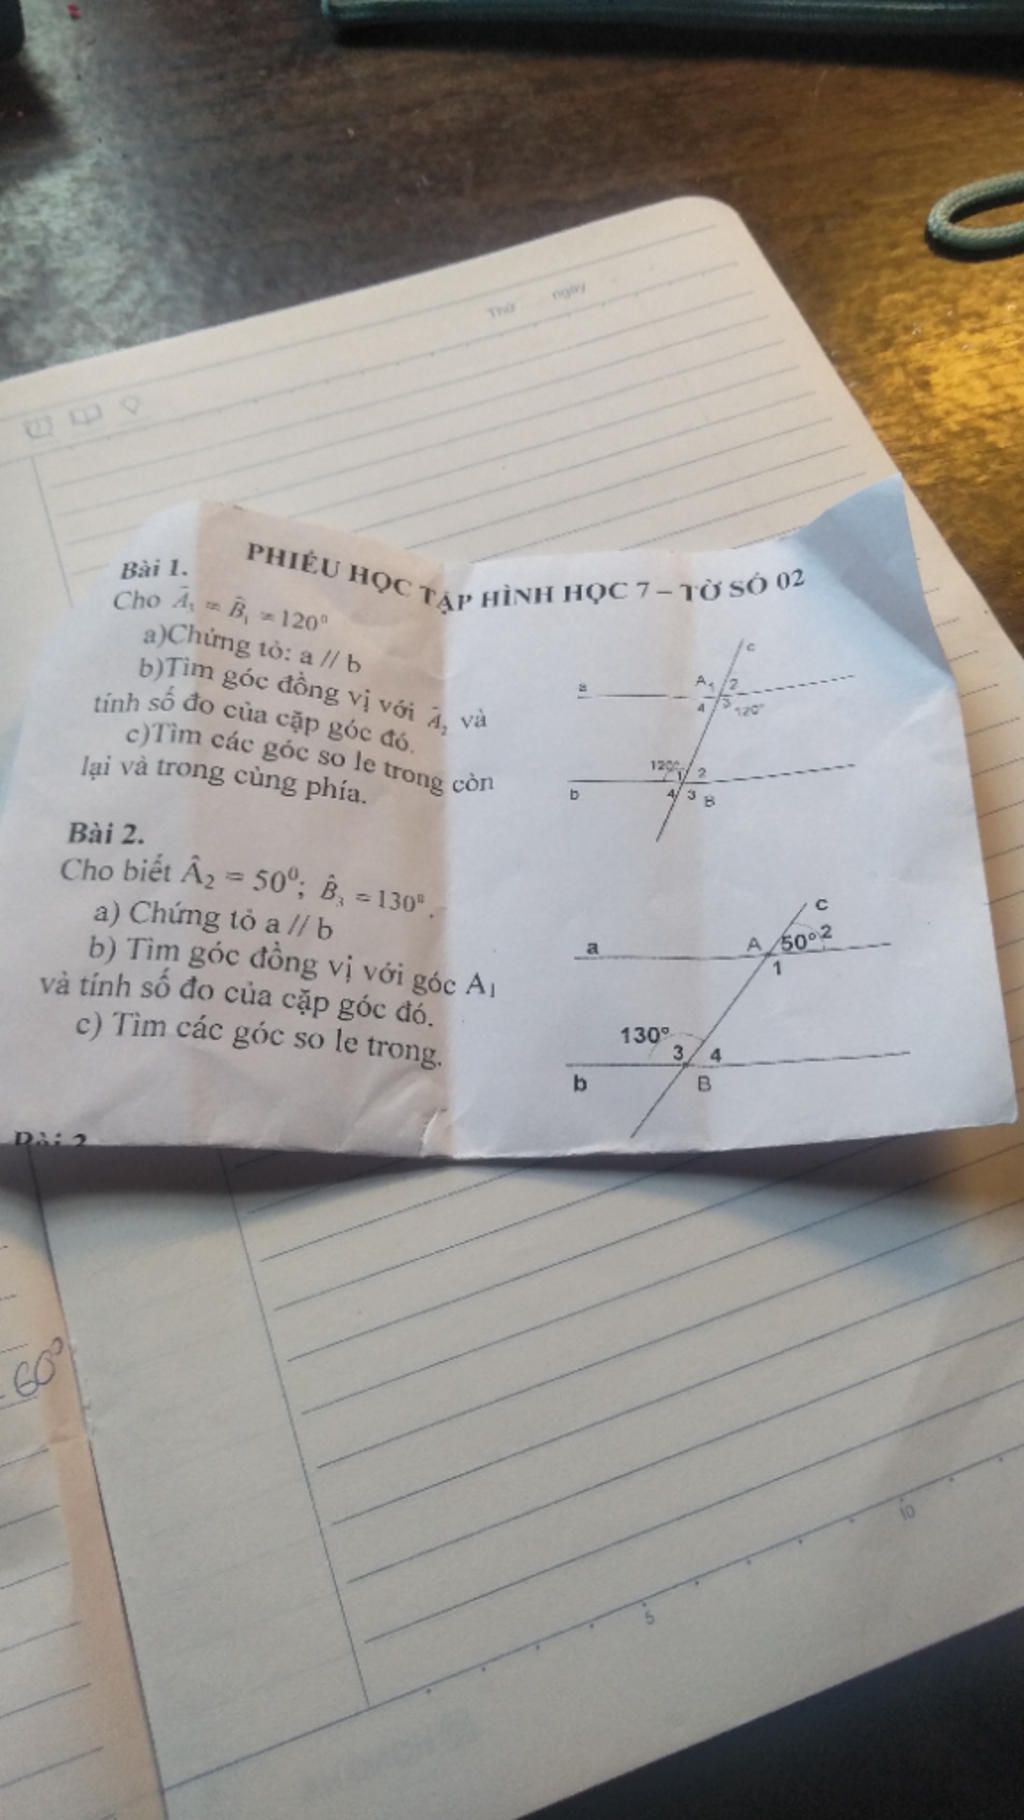 Thứ ngày
PHIẾU HỌC TẬP HÌNH HỌC 7 – TỜ SỐ 02
Bài 1.
Cho Â₃ = B̂₁ = 120⁰
a)Chứng tỏ: a // b
b)Tìm góc đồng vị với Â₂ và
tính số đo của cặp góc đó.
c)Tìm các góc so le trong còn
lại và trong cùng phía.
c
a A 1 2
4 3 120°
120° 1 2
b 4 3 B
Bài 2.
Cho biết Â₂ = 50⁰; B̂₃ = 130⁰.
a) Chứng tỏ a // b
b) Tìm góc đồng vị với góc A₁
và tính số đo của cặp góc đó.
c) Tìm các góc so le trong.
c
a A 50° 2
1
130°
3 4
b B
60°
5
10